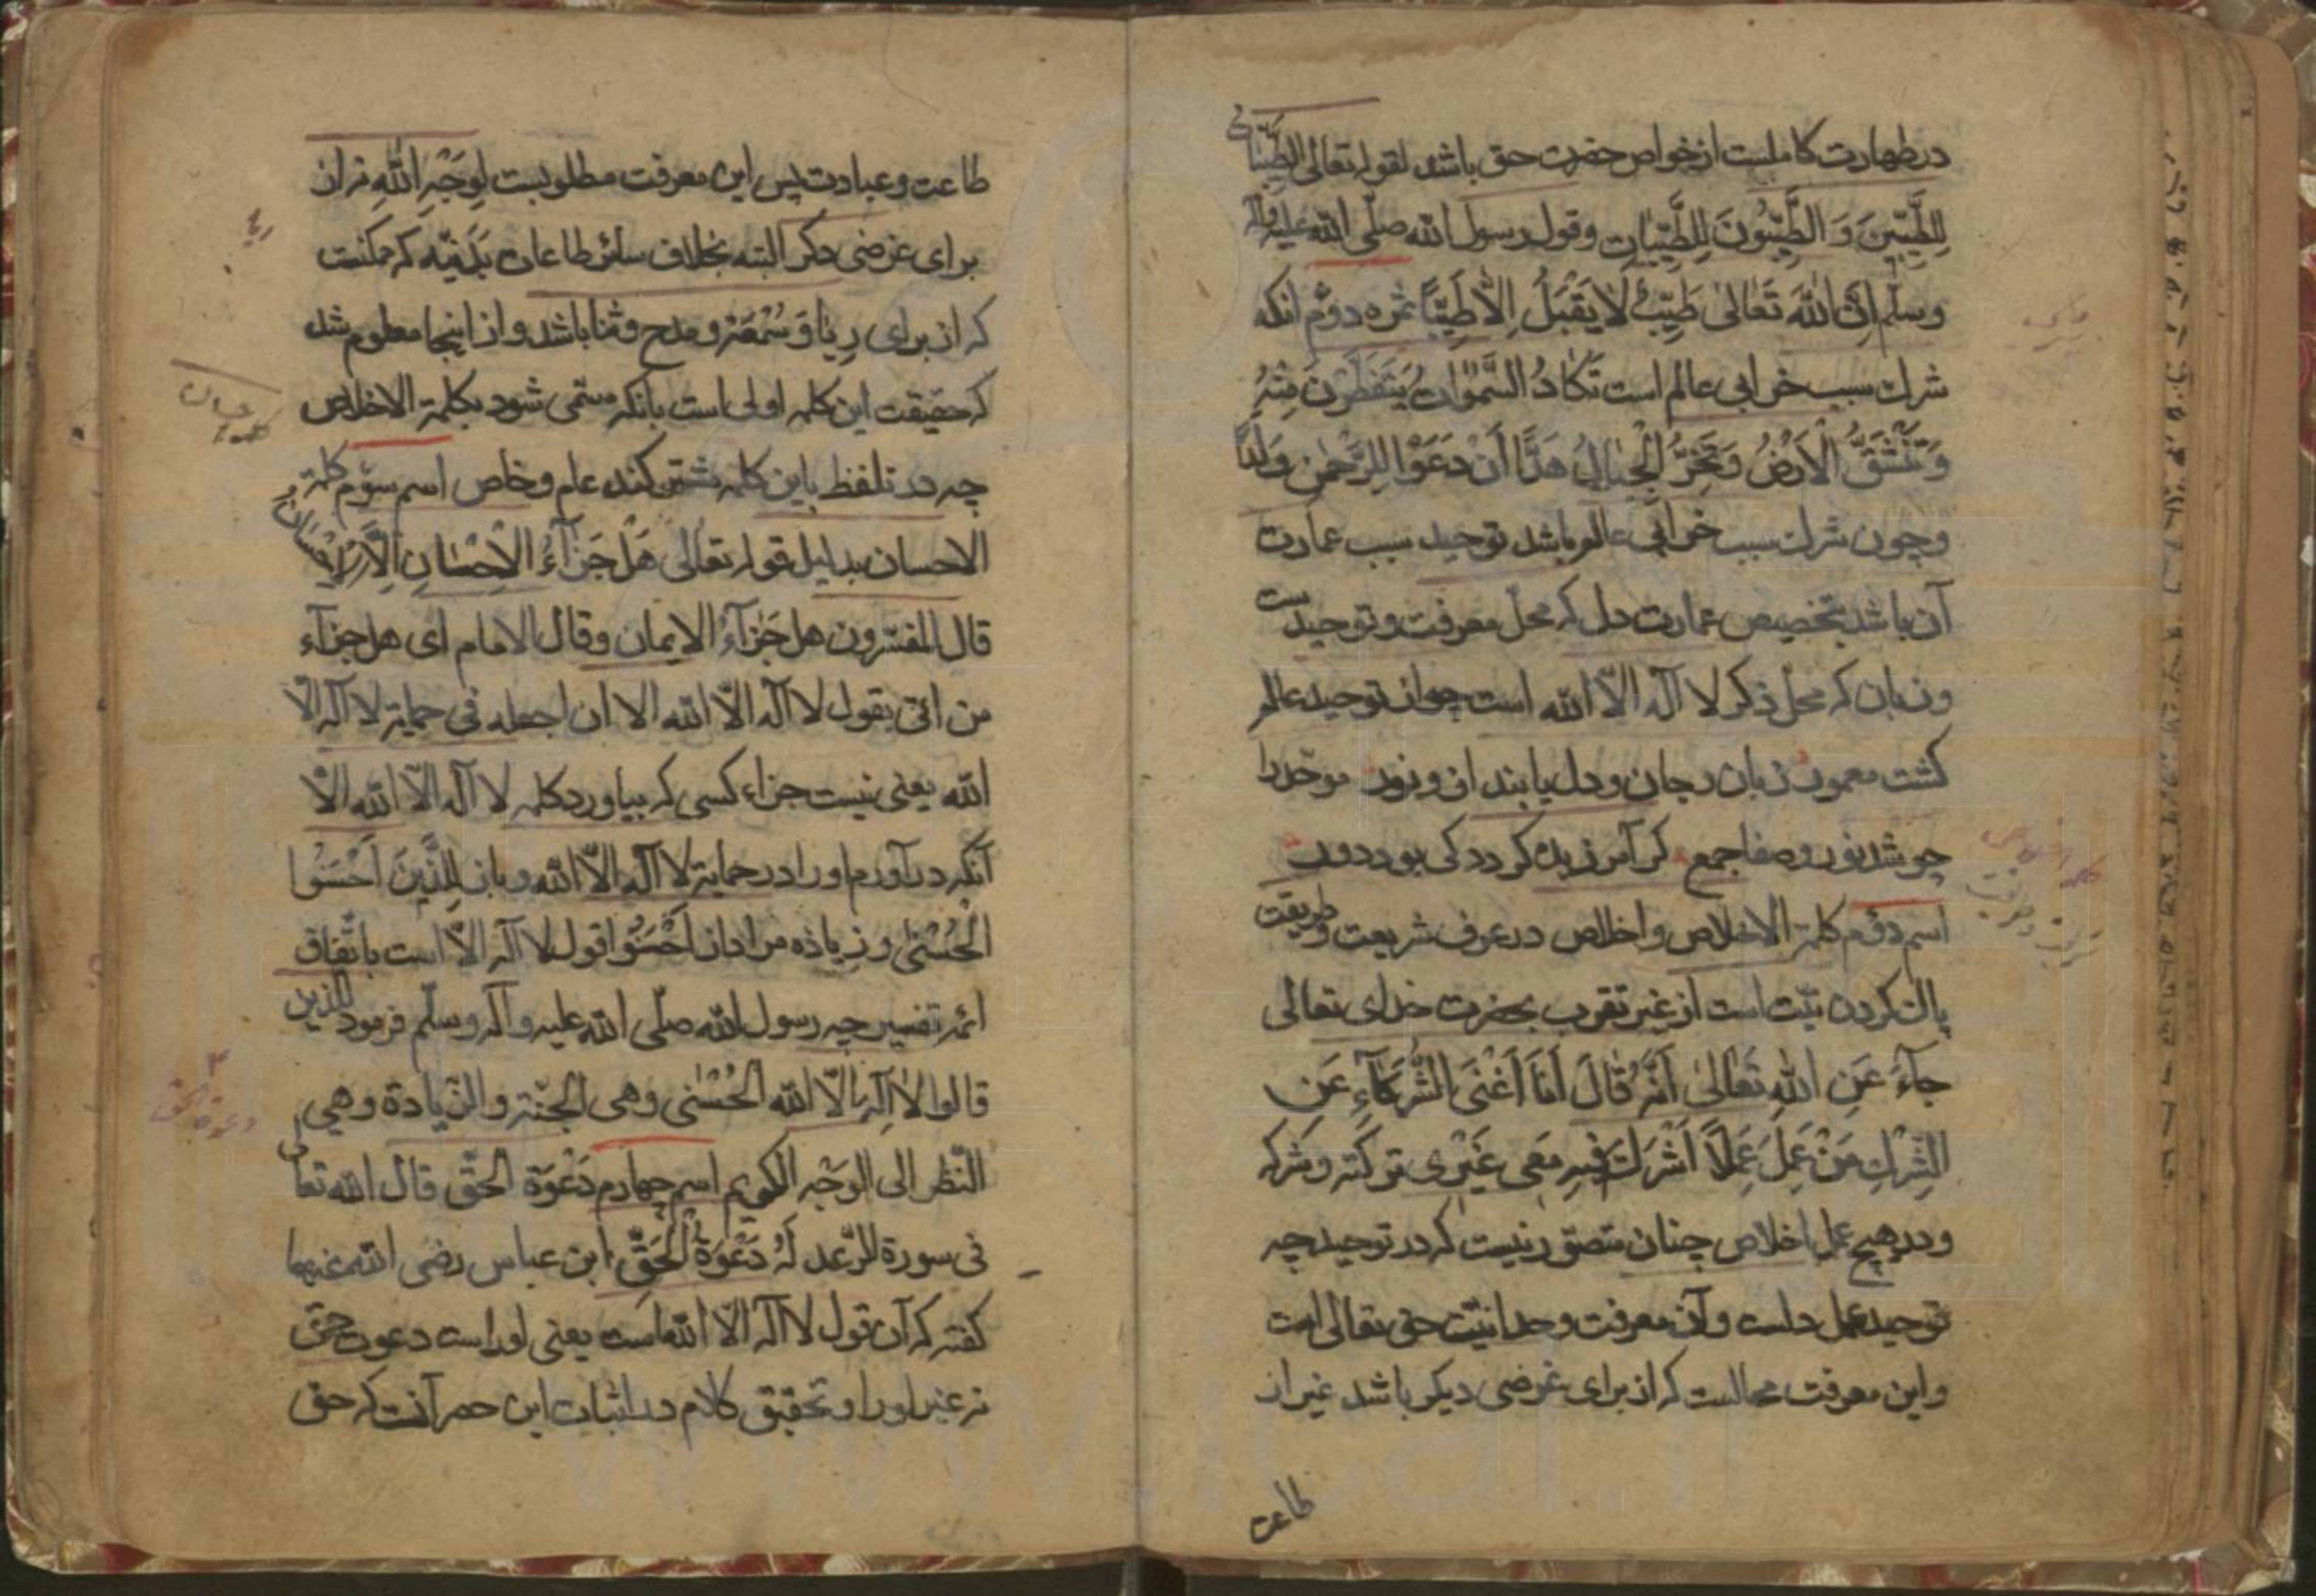 در طهارت کاملست از خواص حضرت حق باشد لقوله تعالی الطیبات
لِلطَّیِّبِینَ وَ الطَّیِّبُونَ لِلطَّیِّبَاتِ وقول رسول الله صلّی الله علیه وآله
وسلّم اِنَّ اللهَ تَعَالیٰ طَیِّبٌ لَا یَقْبَلُ اِلَّا طَیِّبًا ثمره دوّم انکه
شرک سبب خرابی عالم است تَکَادُ السَّمٰوَاتُ یَتَفَطَّرْنَ مِنْهُ
وَتَنْشَقُّ الْاَرْضُ وَتَخِرُّ الْجِبَالُ هَدًّا اَنْ دَعَوْا لِلرَّحْمٰنِ وَلَدًا
وچون شرک سبب خرابی عالم باشد توحید سبب عمارت
آن باشد بتخصیص عمارت دل که محل معرفت و توحیدست
و زبان که محل ذکر لا آله الّا الله است چو از توحید عالم
کشت معمور زبان و جان و دل یابند ازو نور موحد را
چو شد نور و صفا جمع کر آمرزیده کردد کی بود دور
اسم دوّم کلمة الاخلاص واخلاص در عرف شریعت وطریقت
پاک کردن نیّت است از غیر تقرب بحضرت خدای تعالی
جَآءَ عَنِ اللهِ تَعَالیٰ اَنَّهُ قَالَ اَنَا اَغْنَی الشُّرَکَآءِ عَنِ
الشِّرْکِ مَنْ عَمِلَ عَمَلًا اَشْرَکَ فِیهِ مَعِی غَیْرِی ترکته وشرکه
ودر هیچ عمل اخلاص چنان متصوّر نیست که در توحید چه
توحید عمل دلست وآن معرفت وحدانیّت حق تعالی است
واین معرفت محالست که از برای غرضی دیکر باشد غیر از
طاعت
طاعت وعبادت پس این معرفت مطلوبست لِوَجْهِ اللهِ نه از
برای غرضی دکر البته بخلاف سائر طاعات بَدَنِیّه که ممکنست
که از برای رِیَا وَ سُمْعَة و مدح و ثنا باشد و از اینجا معلوم شد
که حقیقت این کلمه اولی است بانکه مسمّی شود بکلمة الاخلاص
چه در تلفظ باین کلمه مشترکند عام و خاص اسم سوّم کلمة
الاحسان بدلیل قوله تعالی هَلْ جَزَآءُ الْاِحْسَانِ اِلَّا الْاِحْسَانُ
قال المفسّرون هل جَزَآءُ الایمان وقال الامام ای هل جزآء
من اتی بقول لا آله الّا الله الا ان اجعله فی حمایة لا آله الّا
الله یعنی نیست جزاء کسی که بیاورد کلمه لا آله الّا الله الّا
آنکه درآورم اورا در حمایة لا آله الّا الله وباز لِلَّذِینَ اَحْسَنُوا
الْحُسْنیٰ وزِیَاده مراد از اَحْسَنُوا قول لا آله الّا است باتّفاق
ائمه تفسیر چه رسول الله صلّی الله علیه وآله وسلّم فرمود للذین
قالوا لا اِلٰه الّا الله الحُسْنٰی وهی الجنّة والزّیادة وهی
النّظر الی الوَجْه الکریم اسم چهارم دَعْوَة الحَقّ قال الله تعالی
فی سورة الرّعد لَهُ دَعْوَةُ الْحَقِّ ابن عباس رضی الله عنهما
کفته که آن قول لا آله الّا الله است یعنی اوراست دعوت حق
نه غیر اورا و تحقیق کلام در اثبات این حصر آنست که حق
ریا